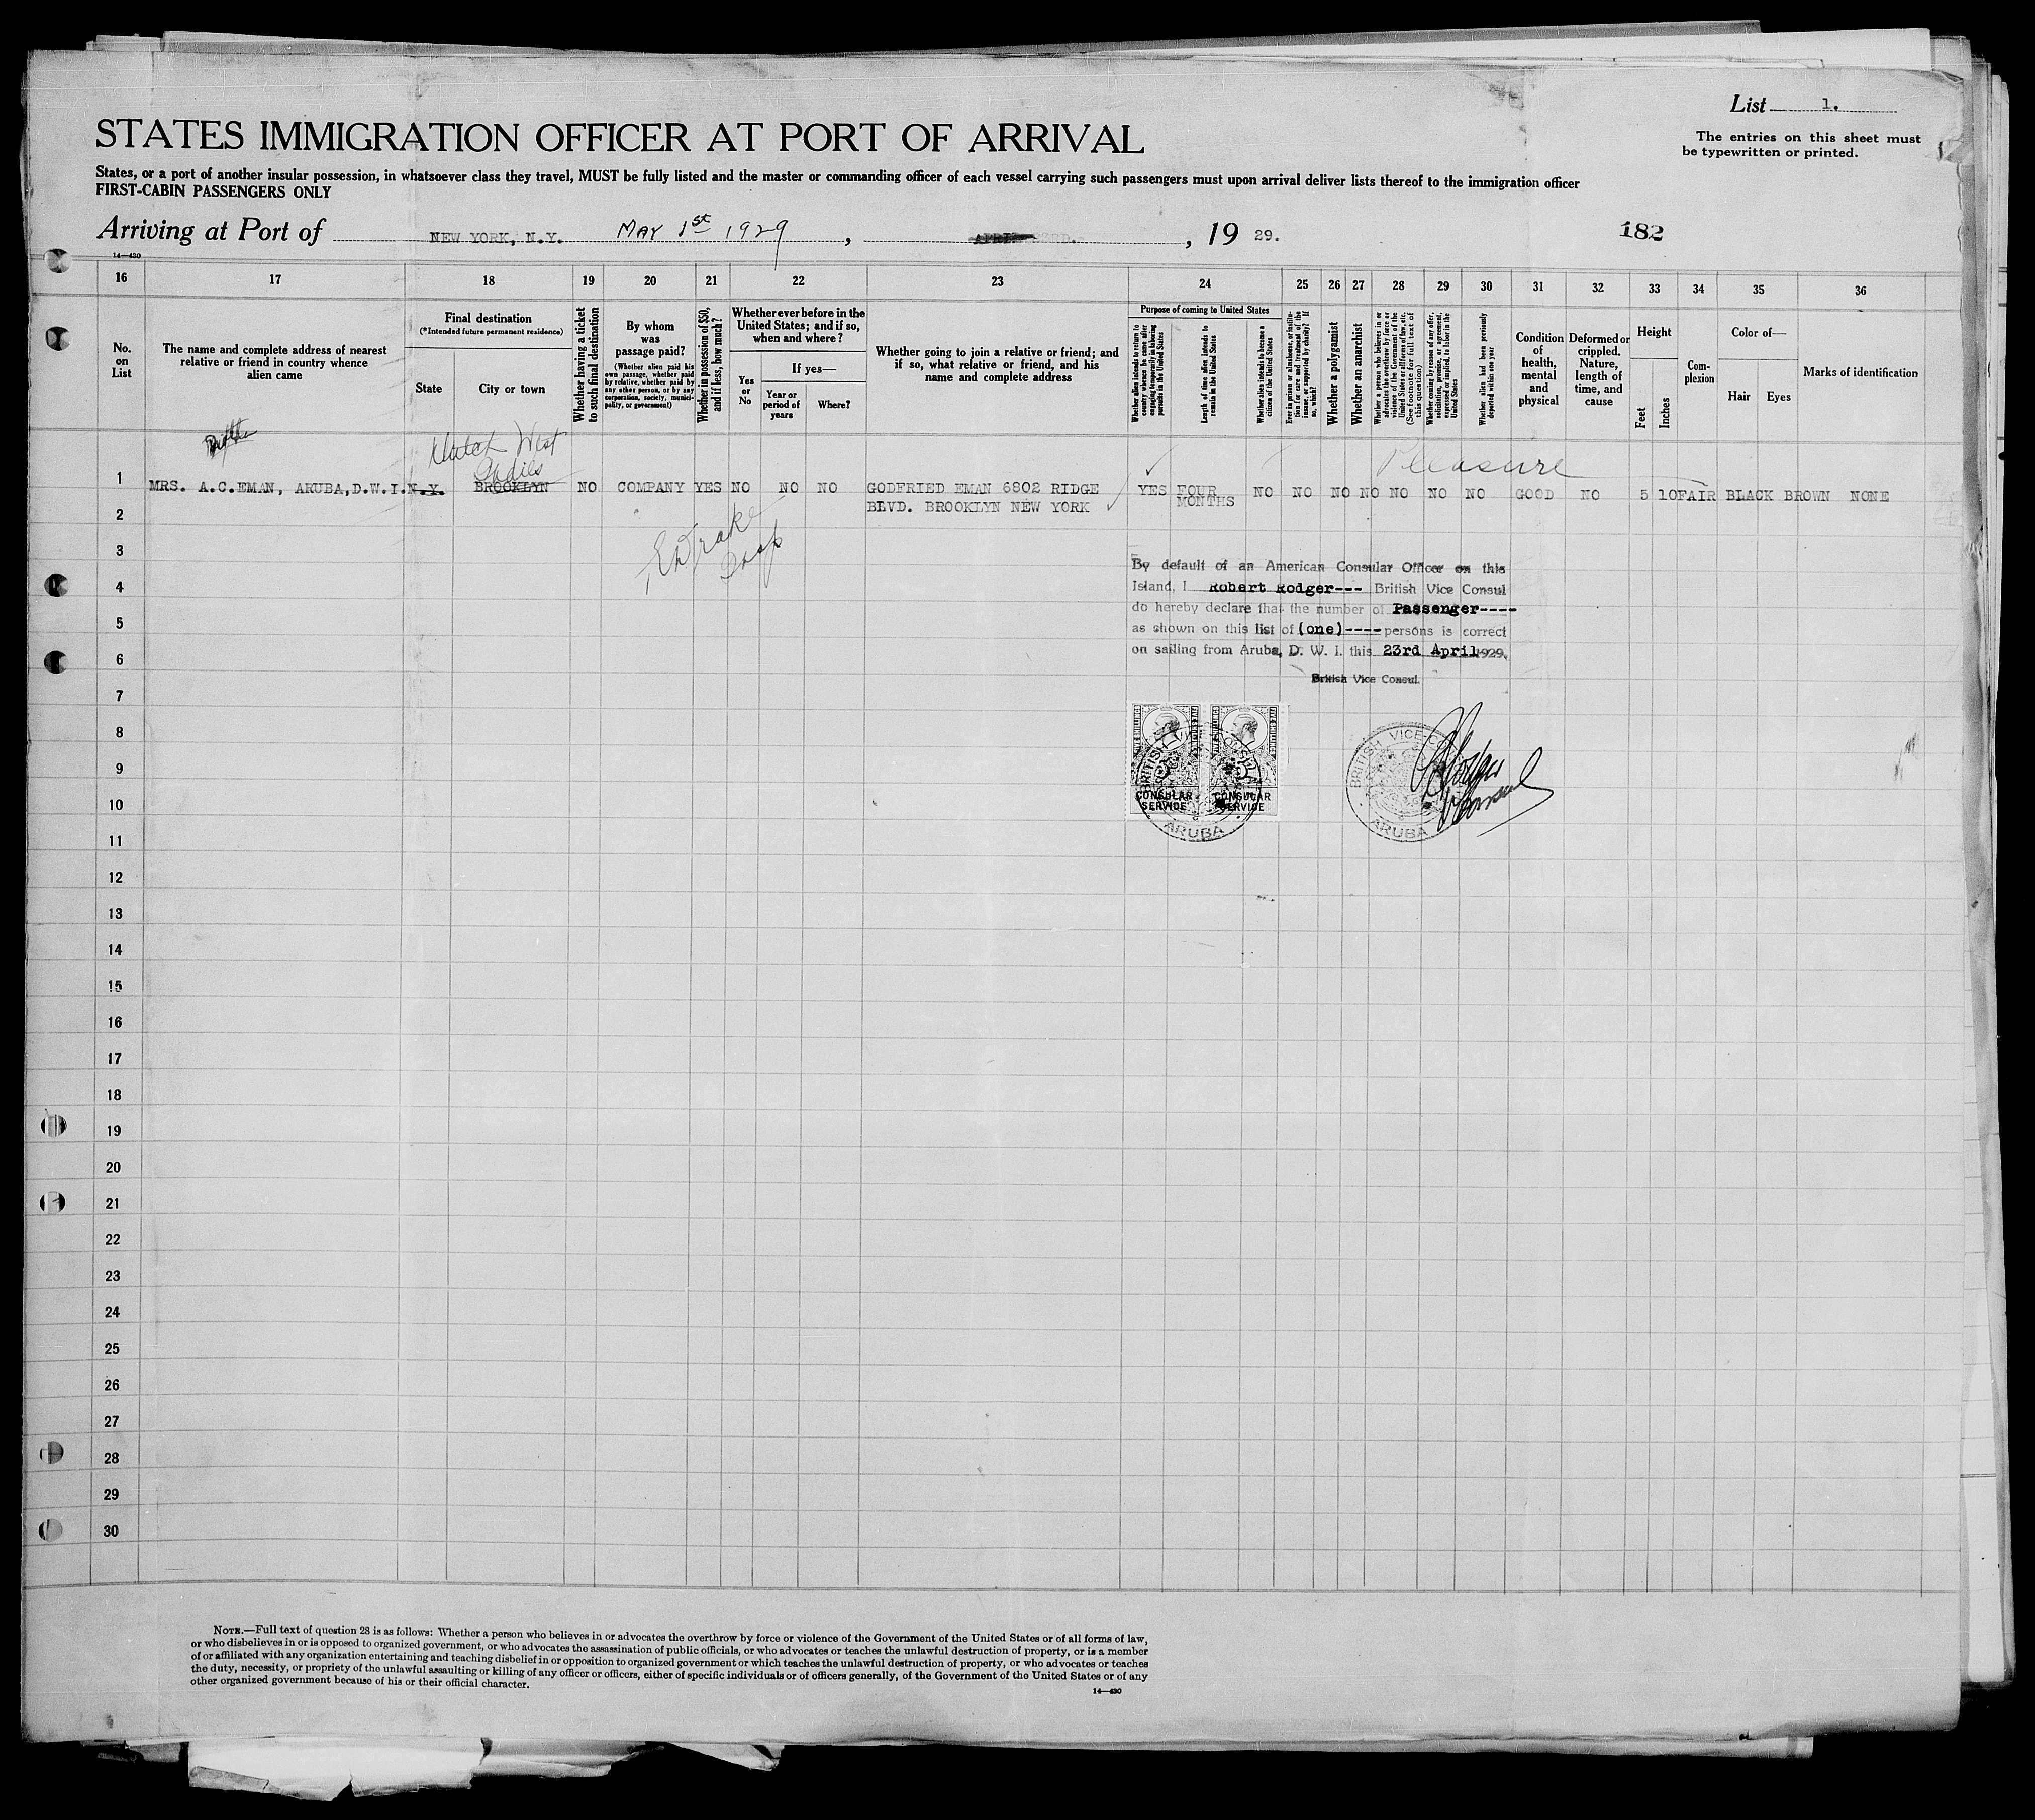 List 1.
STATES IMMIGRATION OFFICER AT PORT OF ARRIVAL
The entries on this sheet must
be typewritten or printed.
States, or a port of another insular possession, in whatsoever class they travel, MUST be fully listed and the master or commanding officer of each vessel carrying such passengers must upon arrival deliver lists thereof to the immigration officer
FIRST-CABIN PASSENGERS ONLY
Arriving at Port of NEW YORK, N.Y. MAY 1st 1929, APRIL 23RD., 19 29.
182
14—430
16 17 18 19 20 21 22 23 24 25 26 27 28 29 30 31 32 33 34 35 36
No.
on
List
The name and complete address of nearest
relative or friend in country whence
alien came
Final destination
(*Intended future permanent residence)
State
City or town
Whether having a ticket
to such final destination
By whom
was
passage paid?
(Whether alien paid his
own passage, whether paid
by relative, whether paid by
any other person, or by any
corporation, society, munici-
pality, or government)
Whether in possession of $50,
and if less, how much?
Whether ever before in the
United States; and if so,
when and where?
Yes
or
No
If yes—
Year or
period of
years
Where?
Whether going to join a relative or friend; and
if so, what relative or friend, and his
name and complete address
Purpose of coming to United States
Whether alien intends to return to
country whence he came after
engaging temporarily in laboring
pursuits in the United States
Length of time alien intends to
remain in the United States
Whether alien intends to become a
citizen of the United States
Ever in prison or almshouse, or institu-
tion for care and treatment of the
insane, or supported by charity? If
so, which?
Whether a polygamist
Whether an anarchist
Whether a person who believes in or
advocates the overthrow by force or
violence of the Government of the
United States or all forms of law, etc.
(See footnote for full text of
this question)
Whether coming by reason of any offer,
solicitation, promise, or agreement,
expressed or implied, to labor in the
United States
Whether alien had been previously
deported within one year
Condition
of
health,
mental
and
physical
Deformed or
crippled.
Nature,
length of
time, and
cause
Height
Feet
Inches
Com-
plexion
Color of—
Hair
Eyes
Marks of identification
Dutch West
Indies
Pleasure
1 MRS. A.C.EMAN, ARUBA,D.W.I. N.Y. BROOKLYN NO COMPANY YES NO NO NO GODFRIED EMAN 6802 RIDGE YES FOUR NO NO NO NO NO NO NO GOOD NO 5 10 FAIR BLACK BROWN NONE
2 BLVD. BROOKLYN NEW YORK MONTHS
3
4
5
6
7
8
9
10
11
12
13
14
15
16
17
18
19
20
21
22
23
24
25
26
27
28
29
30
By default of an American Consular Officer on this
Island, I Robert Rodger--- British Vice Consul
do hereby declare that the number of Passenger----
as shown on this list of (one)---- persons is correct
on sailing from Aruba, D. W. I. this 23rd April 1929.
British Vice Consul.
CONSULAR
SERVICE
CONSULAR
SERVICE
ARUBA
BRITISH VICE-CO
ARUBA
NOTE.—Full text of question 28 is as follows: Whether a person who believes in or advocates the overthrow by force or violence of the Government of the United States or of all forms of law,
or who disbelieves in or is opposed to organized government, or who advocates the assassination of public officials, or who advocates or teaches the unlawful destruction of property, or is a member
of or affiliated with any organization entertaining and teaching disbelief in or opposition to organized government or which teaches the unlawful destruction of property, or who advocates or teaches
the duty, necessity, or propriety of the unlawful assaulting or killing of any officer or officers, either of specific individuals or of officers generally, of the Government of the United States or of any
other organized government because of his or their official character.
14—430